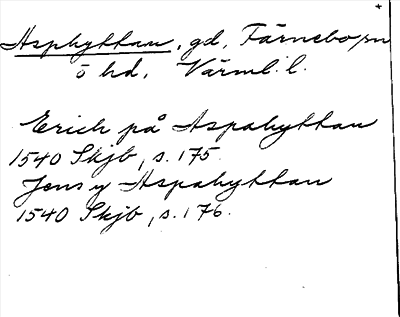 Asphyttan, gd, Färnebo sn
ö hd, Värml. l.
Erich på Aspahyttan
1540 Skjb, s. 175.
Jens y Aspahyttan
1540 Skjb, s. 176.